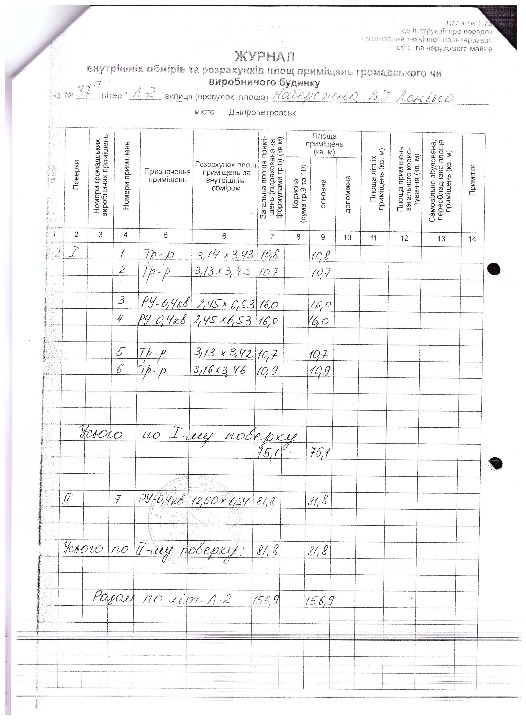 Додаток
до Інструкції про порядок
проведення технічної інвентаризації
об'єктів нерухомого майна
ЖУРНАЛ
внутрішніх обмірів та розрахунків площ приміщень громадського чи
виробничого будинку
№ 37 літер Л-2 вулиця (провулок, площа) Набережна В.І. Леніна
місто Дніпропетровськ
Поверхи
Номери громадських виробничих приміщень
Номери приміщень
Призначення приміщень
Розрахунок площ приміщень за внутрішнім обміром
Загальна площа приміщень (підрахована за формулами гр.6) (кв. м)
Площа приміщень (кв. м)
Корисна (сума гр.9 та 10)
основна
допоміжна
Площа літніх приміщень (кв. м)
Площа приміщень загального користування (кв. м)
Самовільно збудована, переобладнана площа приміщень (кв. м)
Примітки
1 2 3 4 5 6 7 8 9 10 11 12 13 14
I 1 Тр-р 3,14 x 3,43 10,8 10,8
2 Тр-р 3,13 x 3,42 10,7 10,7
3 РУ-0,4кв 2,45 x 6,53 16,0 16,0
4 РУ-0,4кв 2,45 x 6,53 16,0 16,0
5 Тр-р 3,13 x 3,42 10,7 10,7
6 Тр-р 3,16 x 3,46 10,9 10,9
Усього по I-му поверху
75,1 75,1
II 7 РУ-0,4кв 81,8 81,8
Усього по II-му поверху: 81,8 81,8
Разом по літ. Л-2 156,9 156,9